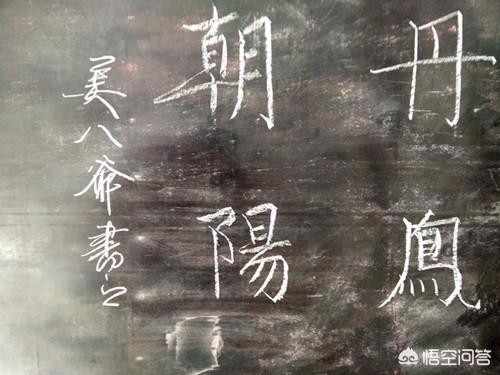 丹鳳
朝陽
吴八爷書之
悟空问答